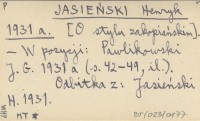 P
JASIEŃSKI Henryk
1931 a. [O stylu zakopiańskim].
— W pozycji: Pawlikowski
J. G. 1931 a (s. 42-49, il.).
Odbitka z: Jasieński
H. 1931.
MT *